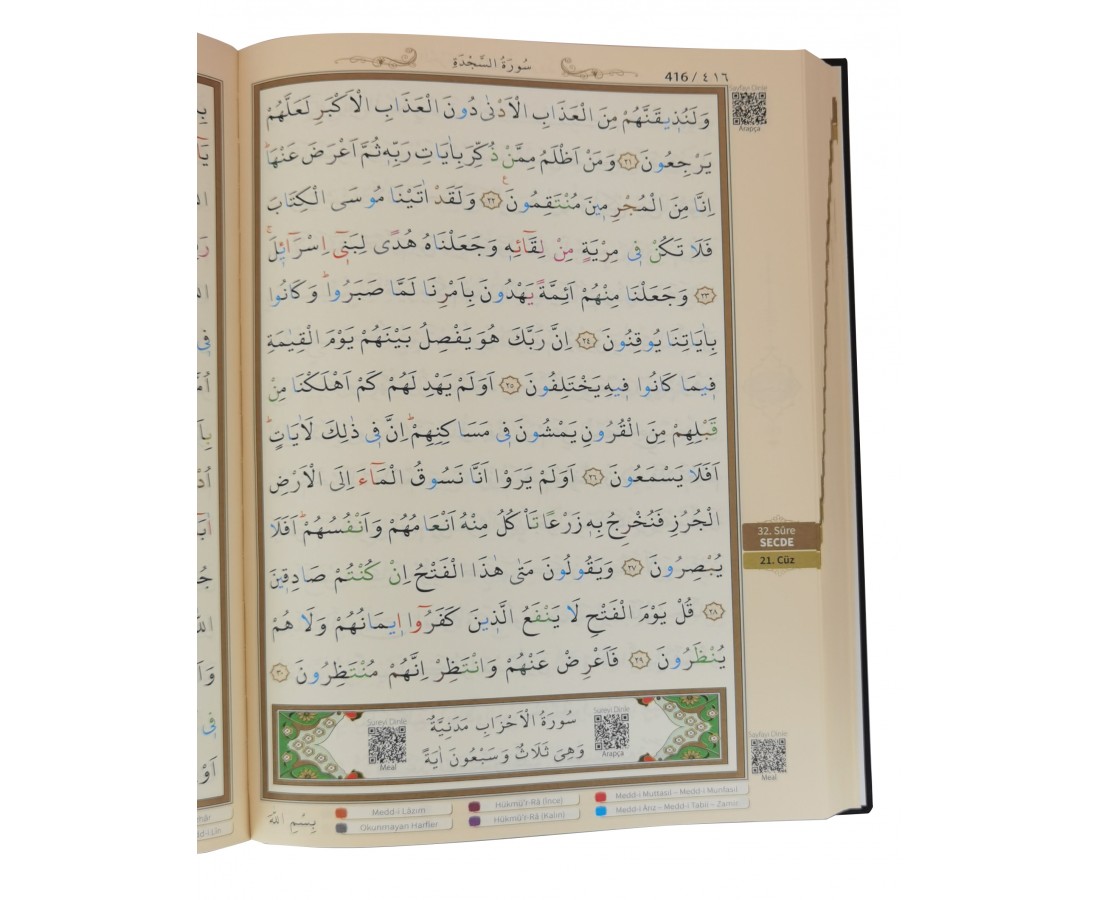 سُورَةُ السَّجْدَةِ
416 / ٤١٦
Sayfayı Dinle
Arapça
وَلَنُذ۪يقَنَّهُمْ مِنَ الْعَذَابِ الْاَدْنٰى دُونَ الْعَذَابِ الْاَكْبَرِ لَعَلَّهُمْ
يَرْجِعُونَ ﴿٢١﴾ وَمَنْ اَظْلَمُ مِمَّنْ ذُكِّرَ بِاٰيَاتِ رَبِّه۪ ثُمَّ اَعْرَضَ عَنْهَاۜ
اِنَّا مِنَ الْمُجْرِم۪ينَ مُنْتَقِمُونَ۟ ﴿٢٢﴾ وَلَقَدْ اٰتَيْنَا مُوسَى الْكِتَابَ
فَلَا تَكُنْ ف۪ي مِرْيَةٍ مِنْ لِقَٓائِه۪ وَجَعَلْنَاهُ هُدًى لِبَن۪ٓي اِسْرَٓائ۪لَۚ
﴿٢٣﴾ وَجَعَلْنَا مِنْهُمْ اَئِمَّةً يَهْدُونَ بِاَمْرِنَا لَمَّا صَبَرُواۜ وَكَانُوا
بِاٰيَاتِنَا يُوقِنُونَ ﴿٢٤﴾ اِنَّ رَبَّكَ هُوَ يَفْصِلُ بَيْنَهُمْ يَوْمَ الْقِيٰمَةِ
ف۪يمَا كَانُوا ف۪يهِ يَخْتَلِفُونَ ﴿٢٥﴾ اَوَلَمْ يَهْدِ لَهُمْ كَمْ اَهْلَكْنَا مِنْ
قَبْلِهِمْ مِنَ الْقُرُونِ يَمْشُونَ ف۪ي مَسَاكِنِهِمْۜ اِنَّ ف۪ي ذٰلِكَ لَاٰيَاتٍۜ
اَفَلَا يَسْمَعُونَ ﴿٢٦﴾ اَوَلَمْ يَرَوْا اَنَّا نَسُوقُ الْمَٓاءَ اِلَى الْاَرْضِ
الْجُرُزِ فَنُخْرِجُ بِه۪ زَرْعًا تَأْكُلُ مِنْهُ اَنْعَامُهُمْ وَاَنْفُسُهُمْۜ اَفَلَا
يُبْصِرُونَ ﴿٢٧﴾ وَيَقُولُونَ مَتٰى هٰذَا الْفَتْحُ اِنْ كُنْتُمْ صَادِق۪ينَ
﴿٢٨﴾ قُلْ يَوْمَ الْفَتْحِ لَا يَنْفَعُ الَّذ۪ينَ كَفَرُٓوا ا۪يمَانُهُمْ وَلَا هُمْ
يُنْظَرُونَ ﴿٢٩﴾ فَاَعْرِضْ عَنْهُمْ وَانْتَظِرْ اِنَّهُمْ مُنْتَظِرُونَ ﴿٣٠﴾
32. Sûre
SECDE
21. Cüz
سُورَةُ الْاَحْزَابِ مَدَنِيَّةٌ
وَهِيَ ثَلَاثٌ وَسَبْعُونَ اٰيَةً
Sûreyi Dinle
Meal
Sûreyi Dinle
Arapça
Sayfayı Dinle
Meal
بِسْمِ اللّٰهِ
Medd-i Lâzım
Okunmayan Harfler
Hükmü'r-Râ (İnce)
Hükmü'r-Râ (Kalın)
Medd-i Muttasıl – Medd-i Munfasıl
Medd-i Ârız – Medd-i Tabîî – Zamir